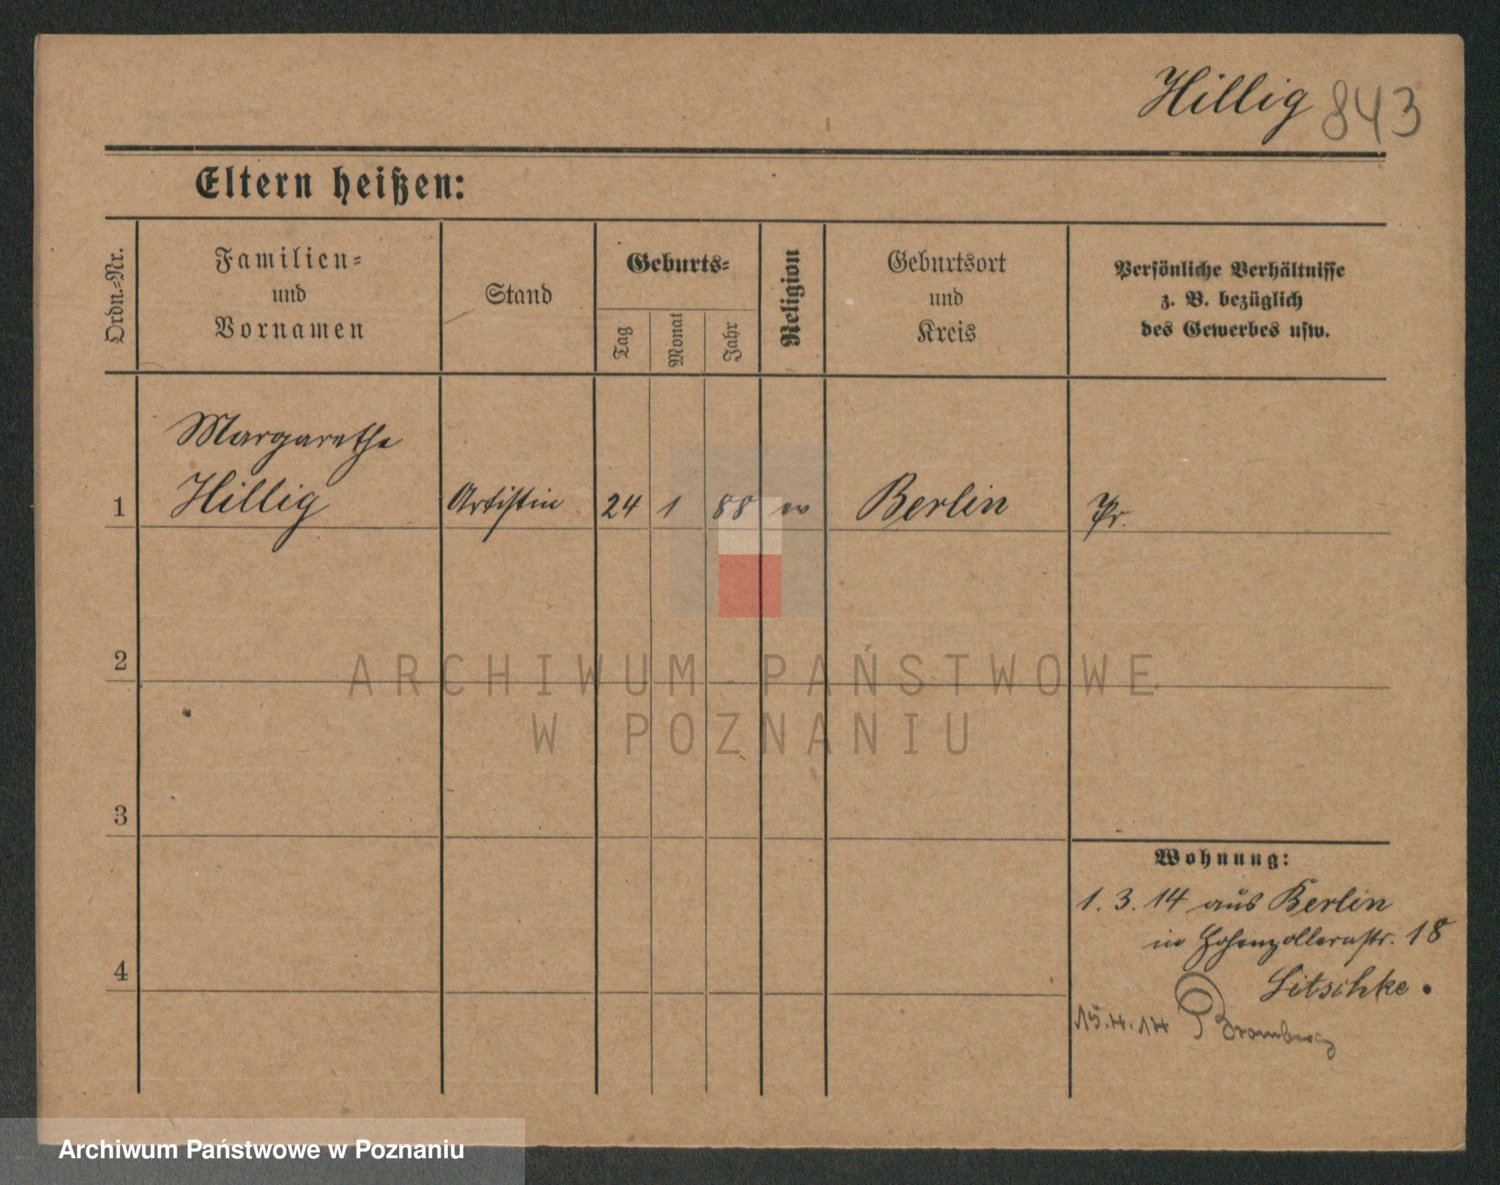 Hillig 843
Eltern heißen:
Ordn.-Nr.
Familien-
und
Vornamen
Stand
Geburts-
Tag
Monat
Jahr
Religion
Geburtsort
und
Kreis
Persönliche Verhältnisse
z. B. bezüglich
des Gewerbes usw.
Margarethe
1 Hillig Artistin 24 1 88 ev Berlin Pr.
2
3
4
Wohnung:
1. 3. 14 aus Berlin
in Hohenzollernstr. 18
Litschke.
15.4.14 Bromberg
ARCHIWUM PAŃSTWOWE
W POZNANIU
Archiwum Państwowe w Poznaniu